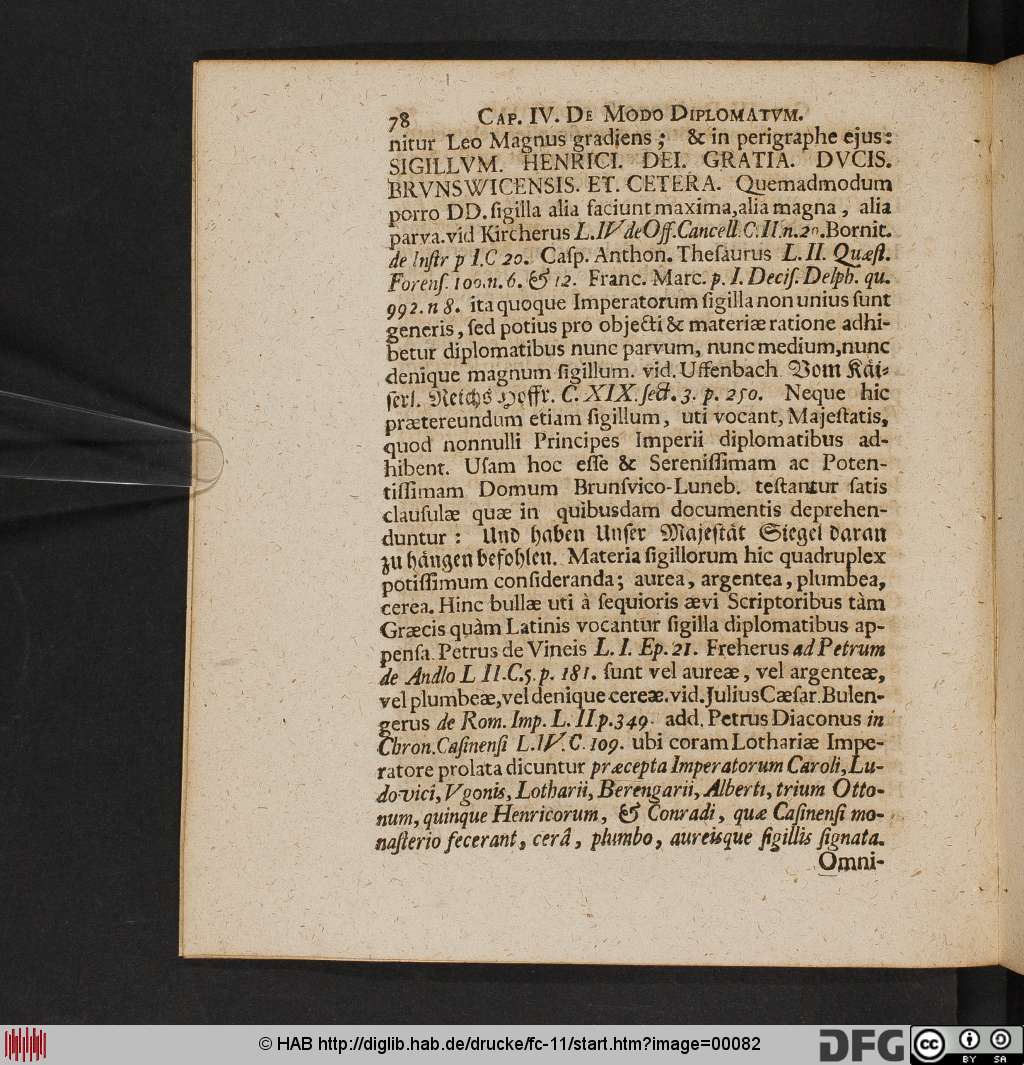 78 CAP. IV. DE MODO DIPLOMATVM.
nitur Leo Magnus gradiens; & in perigraphe ejus:
SIGILLVM. HENRICI. DEI. GRATIA. DVCIS.
BRVNSWICENSIS. ET. CETERA. Quemadmodum
porro DD. ſigilla alia faciunt maxima, alia magna, alia
parva. vid Kircherus L. IV de Off. Cancell. C. II. n. 20. Bornit.
de Inſtr p I. C 20. Caſp. Anthon. Theſaurus L. II. Quæſt.
Forenſ. 100. n. 6. & 12. Franc. Marc. p. I. Deciſ. Delph. qu.
992. n 8. ita quoque Imperatorum ſigilla non unius ſunt
generis, ſed potius pro objecti & materiæ ratione adhi-
betur diplomatibus nunc parvum, nunc medium, nunc
denique magnum ſigillum. vid. Uffenbach Vom Käi-
ſerl. Reichs Hoffr. C. XIX. ſect. 3. p. 250. Neque hic
prætereundum etiam ſigillum, uti vocant, Majeſtatis,
quod nonnulli Principes Imperii diplomatibus ad-
hibent. Uſam hoc eſſe & Sereniſſimam ac Poten-
tiſſimam Domum Brunſvico-Luneb. teſtantur ſatis
clauſulæ quæ in quibusdam documentis deprehen-
duntur: Und haben Unſer Majeſtät Siegel daran
zu hängen befohlen. Materia ſigillorum hic quadruplex
potiſſimum conſideranda; aurea, argentea, plumbea,
cerea. Hinc bullæ uti à ſequioris ævi Scriptoribus tàm
Græcis quàm Latinis vocantur ſigilla diplomatibus ap-
penſa. Petrus de Vineis L. I. Ep. 21. Freherus ad Petrum
de Andlo L II. C. 5. p. 181. ſunt vel aureæ, vel argenteæ,
vel plumbeæ, vel denique cereæ. vid. Julius Cæſar. Bulen-
gerus de Rom. Imp. L. II p. 349. add. Petrus Diaconus in
Chron. Caſinenſi L. IV. C. 109. ubi coram Lothariæ Impe-
ratore prolata dicuntur præcepta Imperatorum Caroli, Lu-
dovici, Vgonis, Lotharii, Berengarii, Alberti, trium Otto-
num, quinque Henricorum, & Conradi, quæ Caſinenſi mo-
naſterio fecerant, cerâ, plumbo, aureisque ſigillis ſignata.
Omni-
© HAB http://diglib.hab.de/drucke/fc-11/start.htm?image=00082
DFG
cc
BY SA